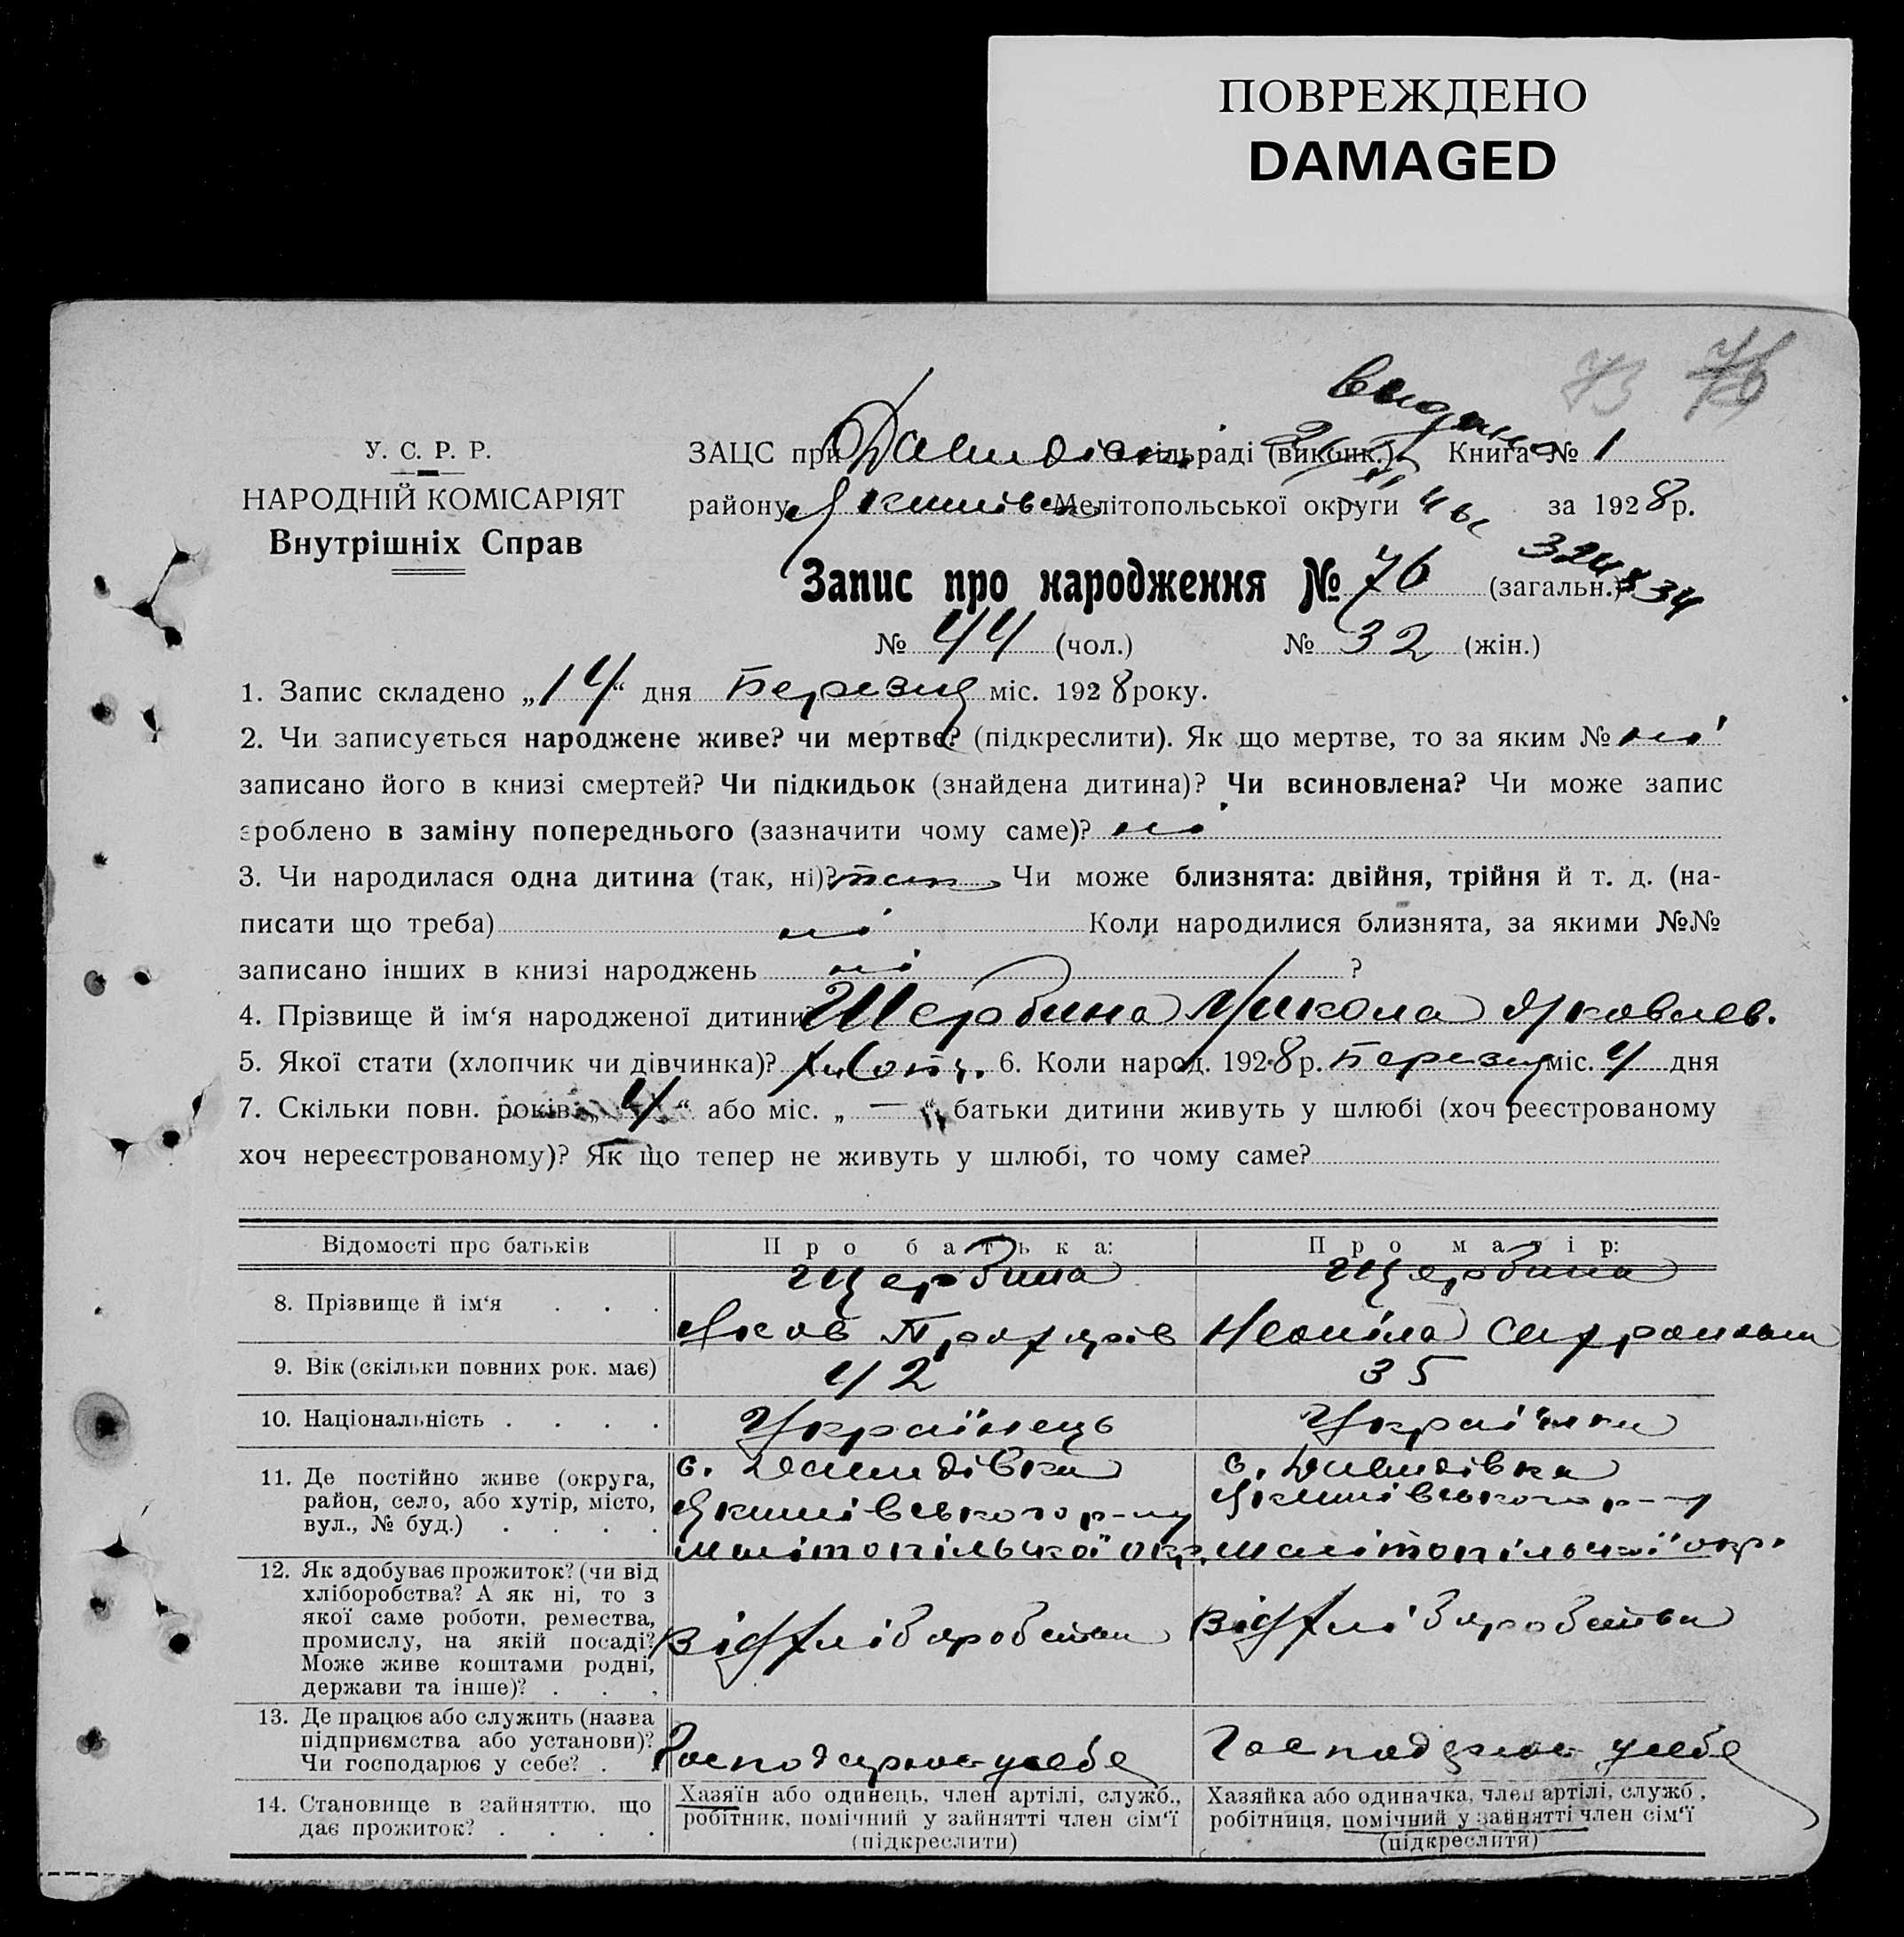 ПОВРЕЖДЕНО
DAMAGED
73 76
У. С. Р. Р.
НАРОДНІЙ КОМІСАРІЯТ
Внутрішніх Справ
ЗАЦС при Давидівск сільраді (виконк.) Книга № 1
району Якимівськ Мелітопольської округи за 1928 р.
Запис про народження № 76 (загальн.)
№ 44 (чол.) № 32 (жін.)
1. Запис складено „14“ дня Березня міс. 1928 року.
2. Чи записується народжене живе? чи мертве? (підкреслити). Як що мертве, то за яким № ні
записано його в книзі смертей? Чи підкидьок (знайдена дитина)? Чи всиновлена? Чи може запис
зроблено в заміну попереднього (зазначити чому саме)? ні
3. Чи народилася одна дитина (так, ні)? так Чи може близнята: двійня, трійня й т. д. (на-
писати що треба) ні Коли народилися близнята, за якими №№
записано інших в книзі народжень ні ?
4. Прізвище й ім‘я народженої дитини Щербина Микола Яковлев.
5. Якої стати (хлопчик чи дівчинка)? хлопч. 6. Коли народ. 1928 р. Березня міс. 4 дня
7. Скільки повн. років „4“ або міс. „—“ батьки дитини живуть у шлюбі (хоч реєстрованому
хоч нереєстрованому)? Як що тепер не живуть у шлюбі, то чому саме?
Відомості про батьків Про батька: Про матір:
8. Прізвище й ім‘я . . . Щербина Щербина
Яков Прохорів Неоніла
9. Вік (скільки повних рок. має) 42 35
10. Національність . . . . Українець Українка
11. Де постійно живе (округа, район, село, або хутір, місто, вул., № буд.) . . . .
с. Давидівка с. Давидівка
Якимівського р-ну Якимівського р-ну
Мелітопільської окр. Мелітопільської окр.
12. Як здобуває прожиток? (чи від
хліборобства? А як ні, то з
якої саме роботи, ремества,
промислу, на якій посаді?
Може живе коштами родні,
держави та інше)? . . .
від хліборобства від хліборобства
13. Де працює або служить (назва
підприємства або установи)?
Чи господарює у себе? .
Господарює у себе Господарює у себе
14. Становище в зайняттю, що
дає прожиток? . . . .
Хазяїн або одинець, член артілі, служб.,
робітник, помічний у зайнятті член сім‘ї
(підкреслити)
Хазяйка або одиначка, член артілі, служб.,
робітниця, помічний у зайнятті член сім‘ї
(підкреслити)